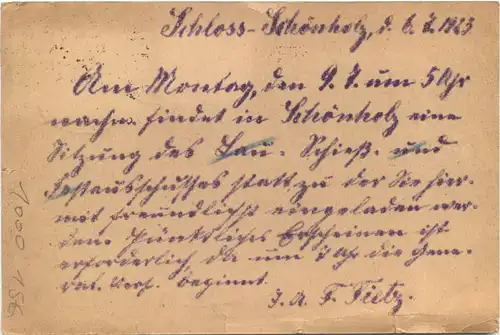 Schloss-Schönholz, d. 6. 7. 1923
Am Montag, den 9. 7. um 5 Uhr
nachm. findet in Schönholz eine
Sitzung des Bau-, Schieß- und
Festausschusses statt, zu der Sie hier-
mit freundlichst eingeladen wer-
den. Pünktliches Erscheinen ist
erforderlich da um 7 Uhr die Gene-
ral. Vers. beginnt.
J. A. F. Fietz.
1000 156